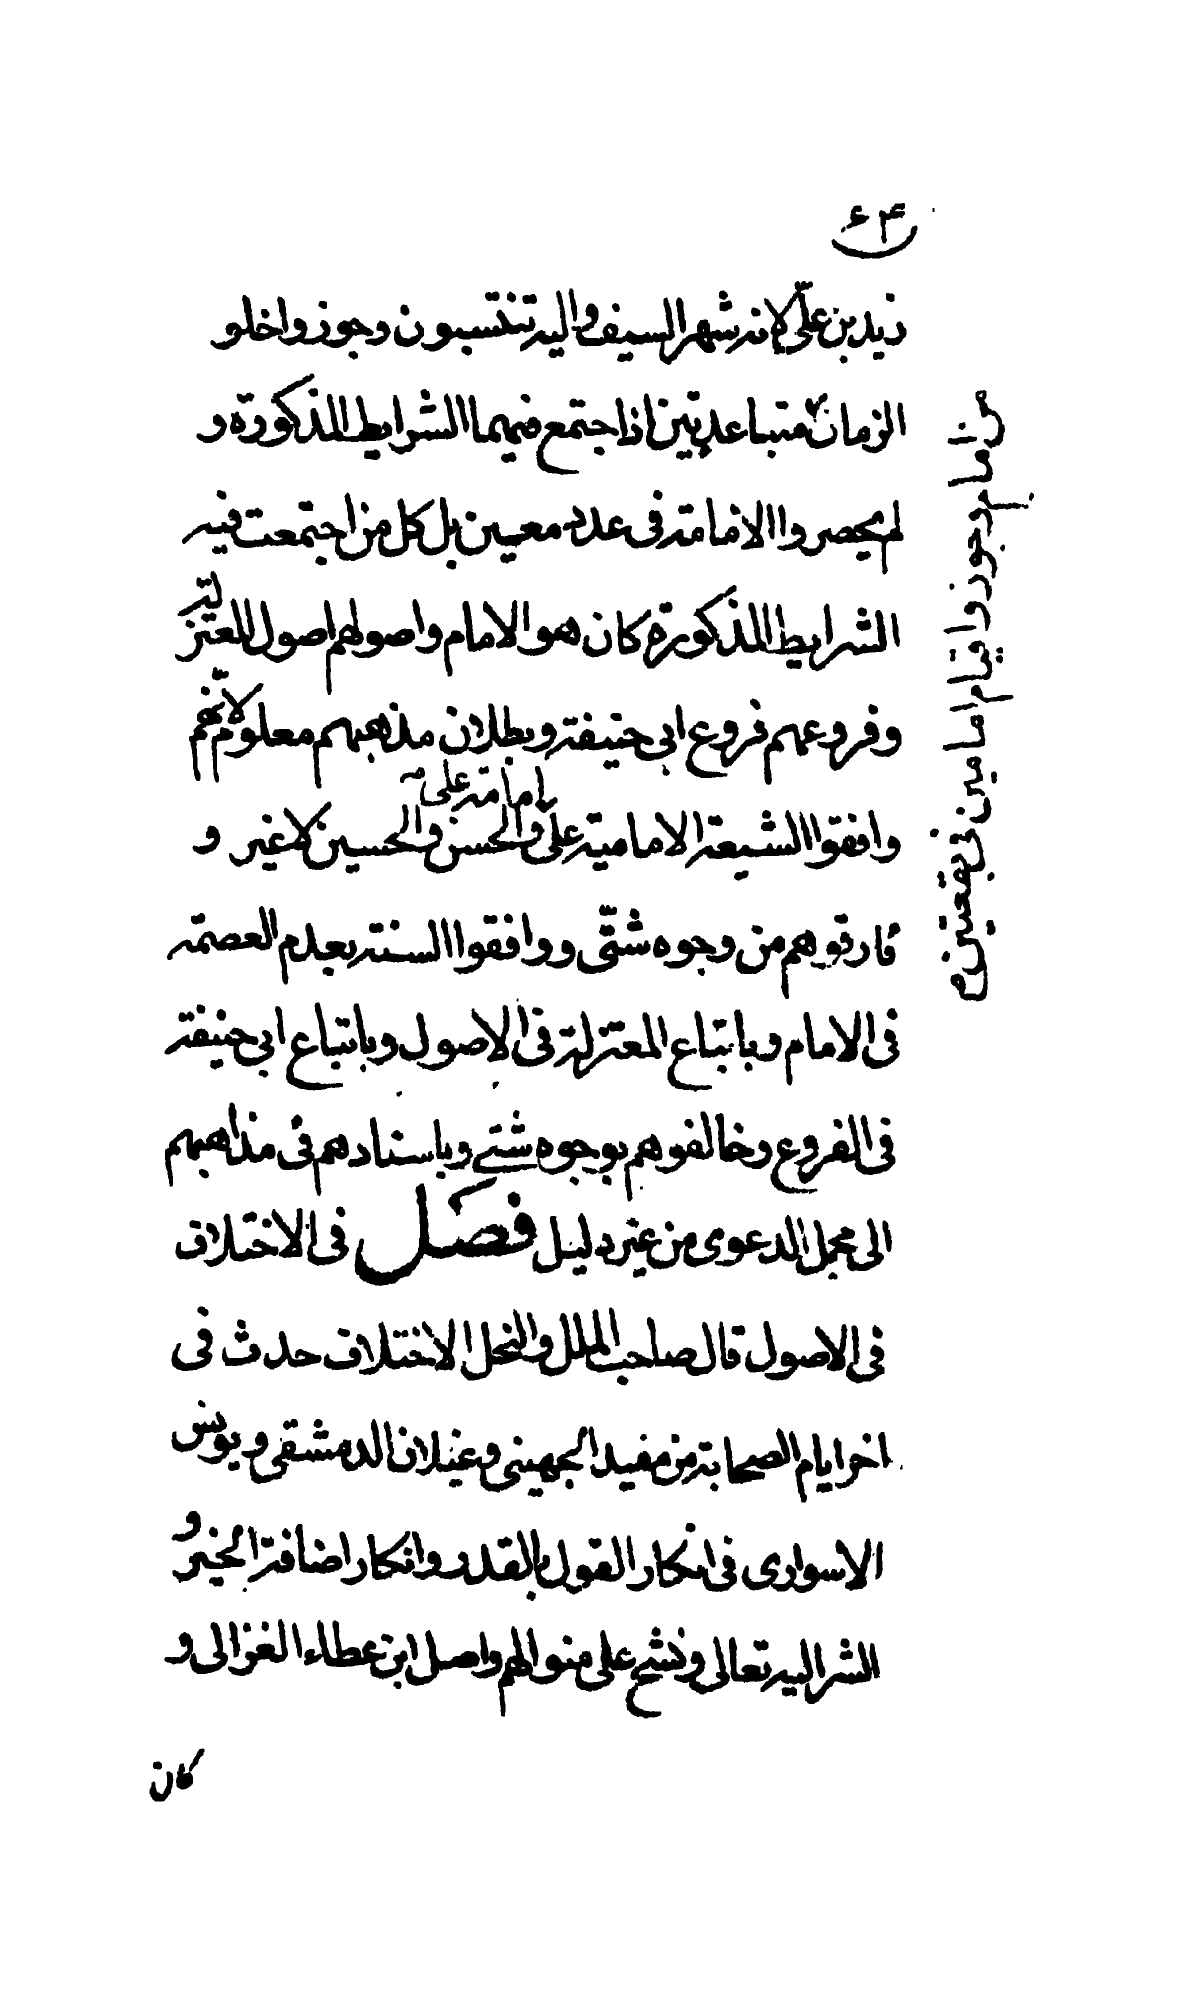 ٤٣
زيد بن علىّ لانه شهر السيف واليه تنتسبون وجوزوا خلو
الزمان متباعدتين اذا اجتمع فيهما الشرايط المذكورة و
لم يحصروا الامامة فى عدد معين بل كل من اجتمعت فيه
الشرايط المذكورة كان هو الامام واصولهم اصول المعتزلة
وفروعهم فروع ابى حنيفة وبطلان مذهبهم معلوم لانّهم
وافقوا الشيعة الامامية بامامة علىّ علىّ والحسن والحسين لا غير و
فارقوهم من وجوه شتّى ووافقوا السنة بعدم العصمة
فى الامام وباتباع المعتزلة فى الاصول وباتباع ابى حنيفة
فى الفروع وخالفوهم بوجوه شتى وباسنادهم فى مذاهبهم
الى مجمل الدعوى من غير دليل فصل فى الاختلاف
فى الاصول قال صاحب الملل والنحل الاختلاف حدث فى
اخر ايام الصحابة من مفيد الجهينى وغيلان الدمشقى ويونس
الاسوارى فى انكار القول بالقدر وانكار اضافة الخير و
الشر اليه تعالى ونشح على منوالهم واصل ابن عطاء الغزالى و
كان
من امام وجوزوا قيام امامين فى بقعتين م